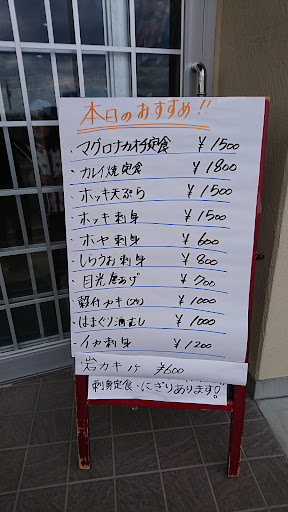 本日のおすすめ!!
・マグロナカオチ定食 ¥1500
・カレイ焼定食 ¥1800
・ホッキ天ぷら ¥1500
・ホッキ刺身 ¥1500
・ホヤ刺身 ¥600
・しらうお刺身 ¥800
・目光唐あげ ¥700
・殻付カキ(2ケ) ¥1000
・はまぐり酒むし ¥1000
・イカ刺身 ¥1200
・岩カキ 1ケ ¥600
刺身定食・にぎりあります!